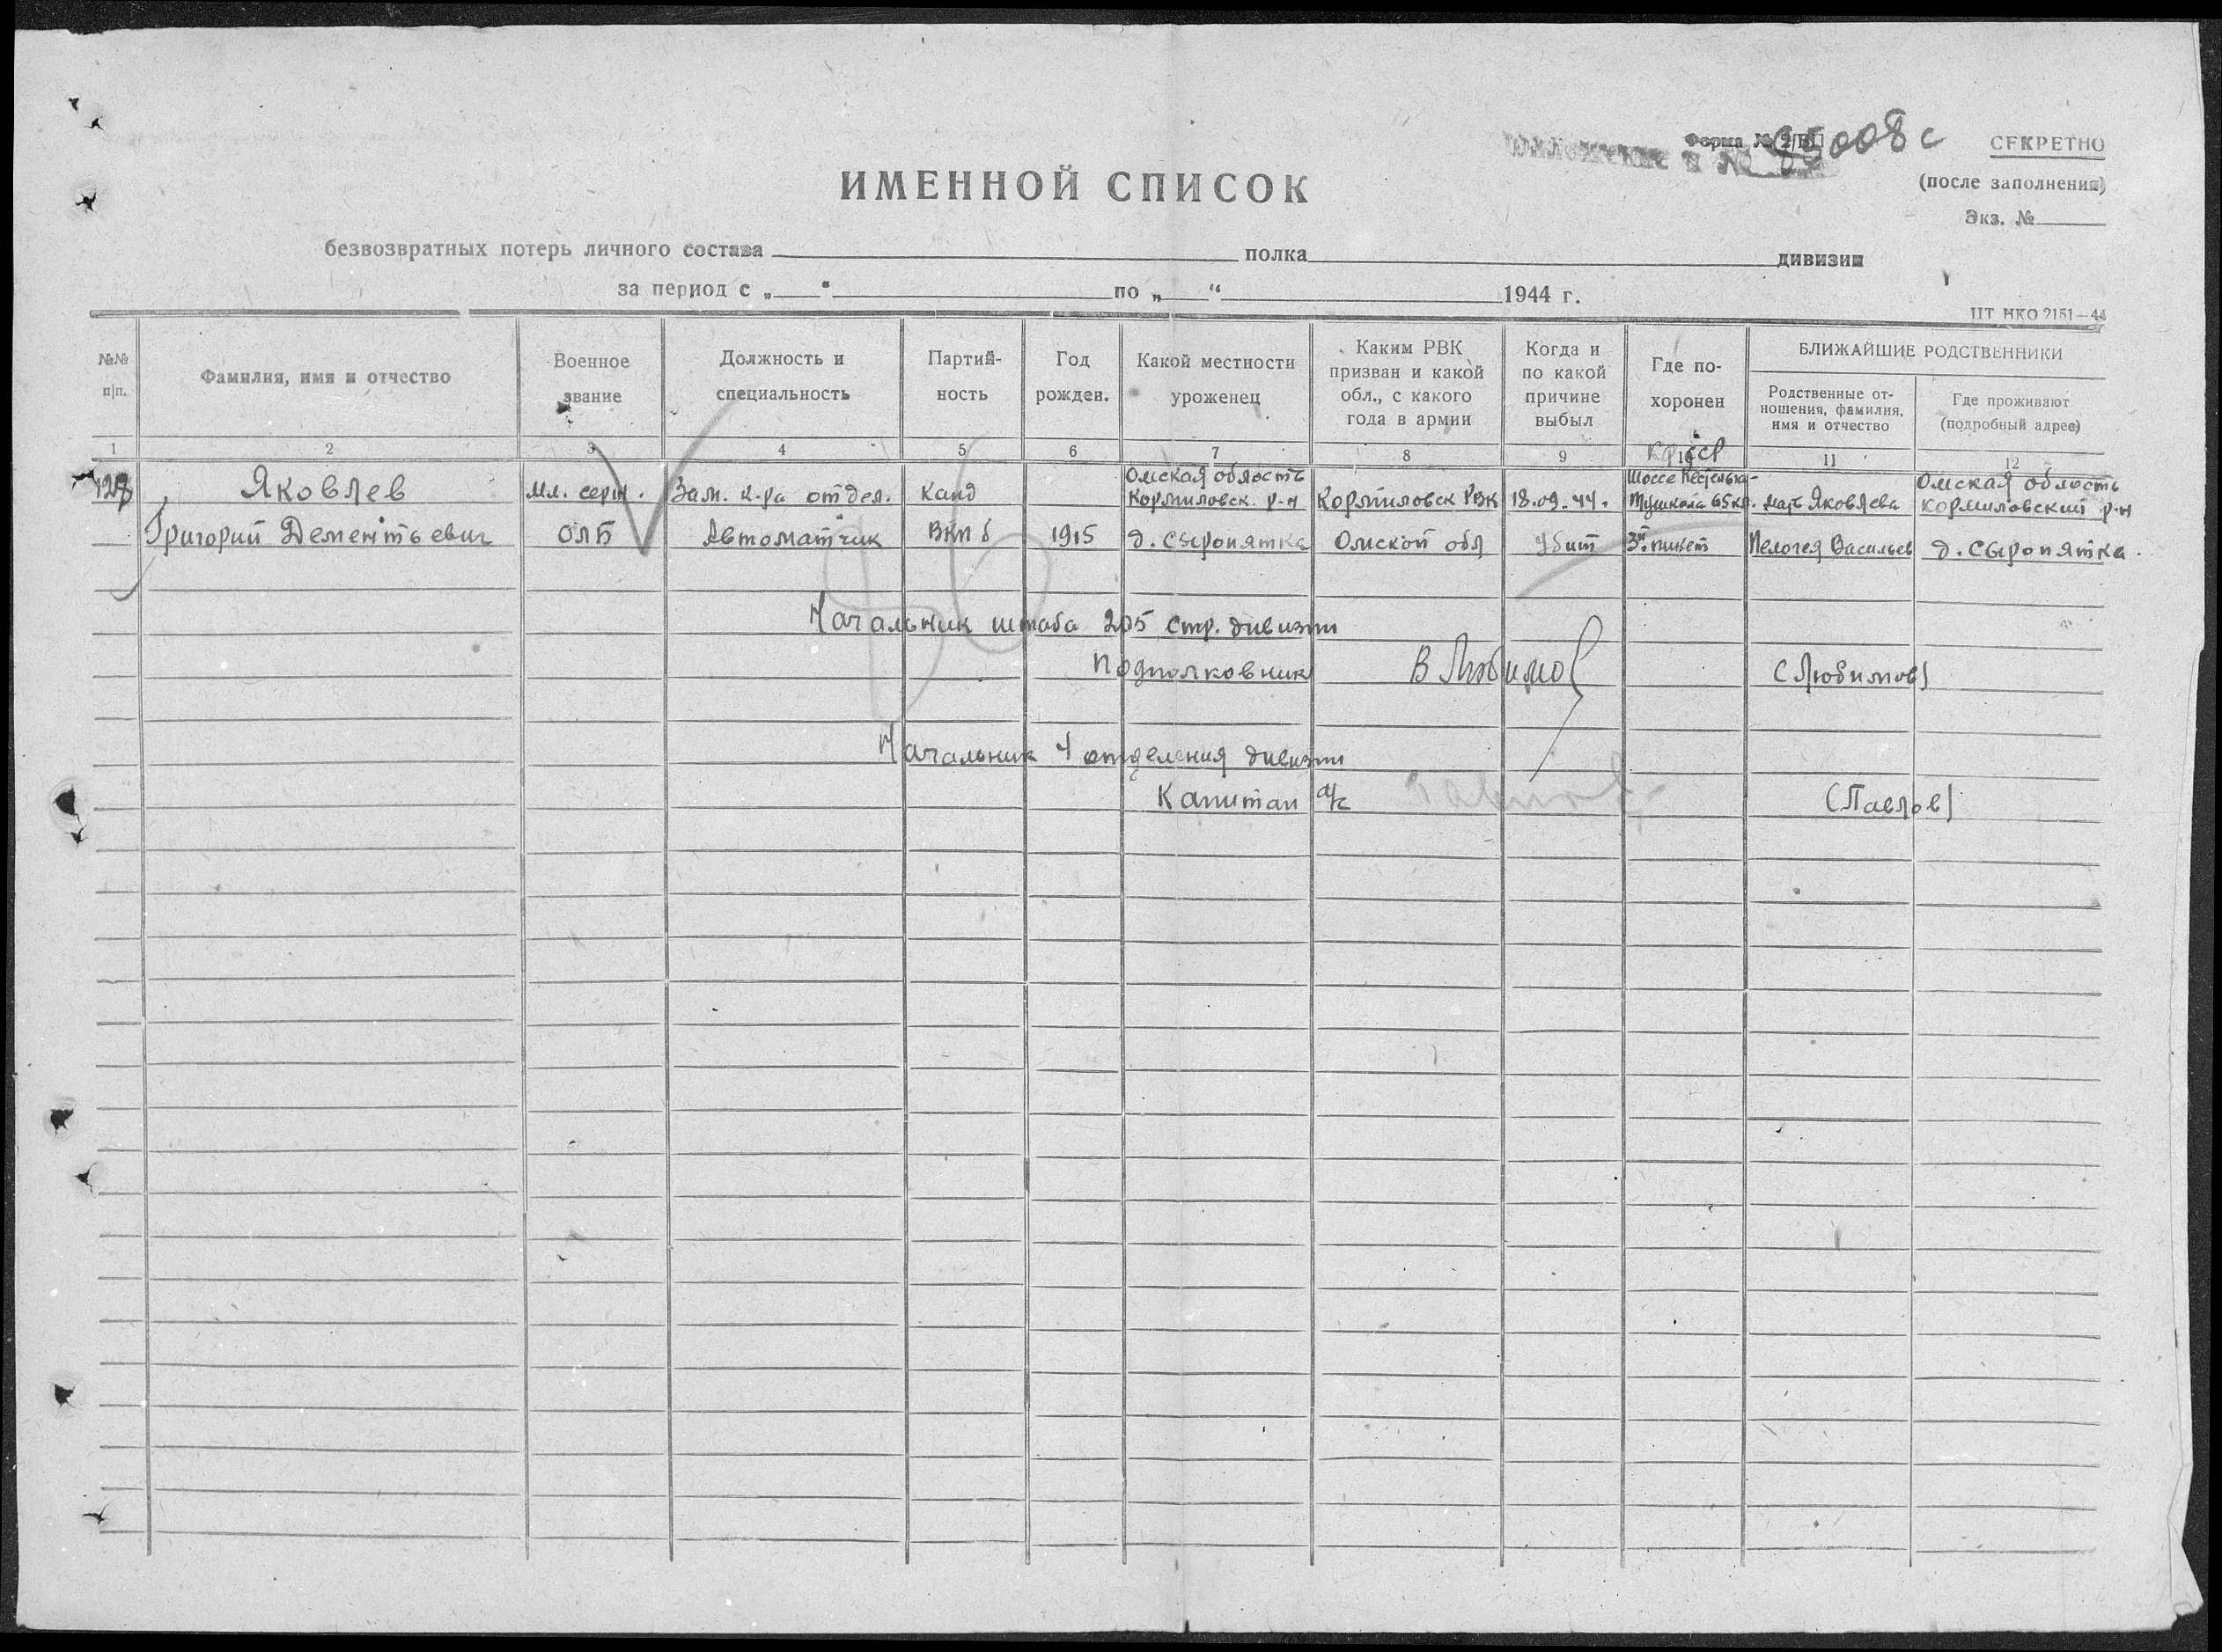 Форма № 2/БП
85008 с
СЕКРЕТНО
(после заполнения)
Экз. №
ИМЕННОЙ СПИСОК
безвозвратных потерь личного состава полка дивизии
за период с „ “ по „ “ 1944 г.
ЦТ НКО 2151—44
№№ п/п.
Фамилия, имя и отчество
Военное звание
Должность и специальность
Партий-
ность
Год рожден.
Какой местности уроженец
Каким РВК
призван и какой
обл., с какого
года в армии
Когда и
по какой
причине
выбыл
Где по-
хоронен
БЛИЖАЙШИЕ РОДСТВЕННИКИ
Родственные от-
ношения, фамилия,
имя и отчество
Где проживают
(подробный адрес)
1 2 3 4 5 6 7 8 9 10 11 12
КфССР
128 Яковлев
Григорий Дементьевич
Мл. серж.
ОЛБ
Зам. к-ра отдел.
Автоматчик
Канд
ВКП б
1915
Омская область
Кормиловск. р-н
д. Сыропятка
Кормиловск РВК
Омской обл
18.09.44.
Убит
Шоссе Кестеньга-
65 км.
3й пикет
Мать Яковлева
Пелогея Васильев
Омская область
Кормиловский р-н
д. Сыропятка.
Начальник штаба 205 стр. дивизии
Подполковник В Любимов (Любимов)
Начальник 4 отделения дивизии
Капитан а/с Павлов (Павлов)